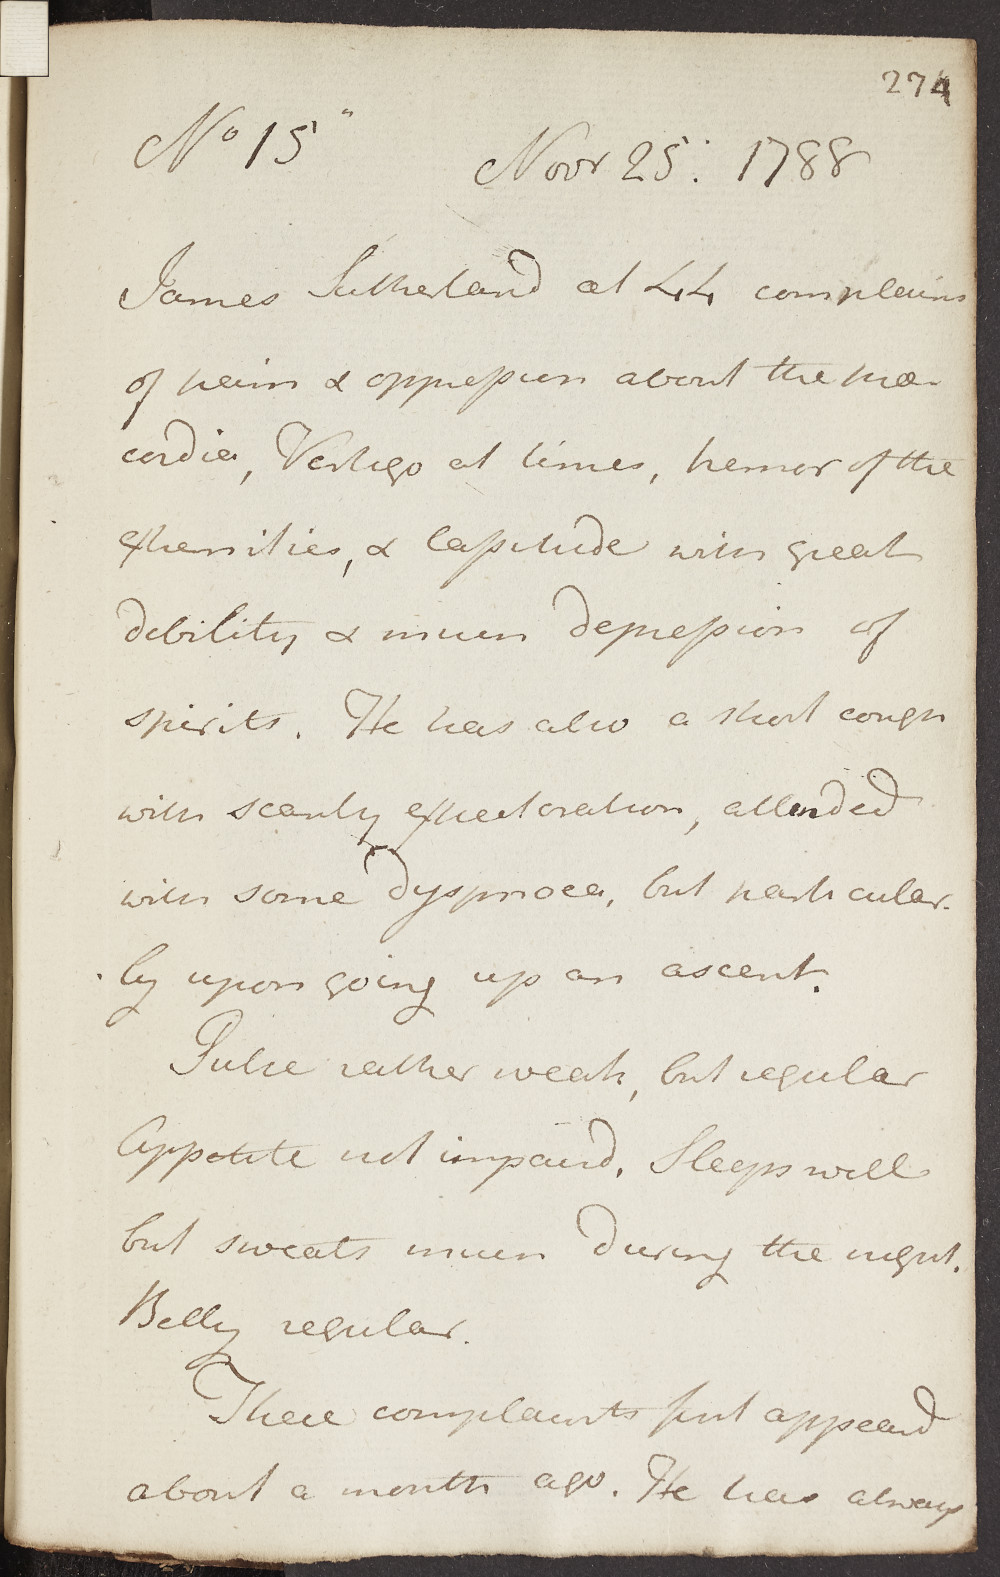 274
No 15"
Novr 25: 1788
James Sutherland æt 44 complains
of pain & oppression about the præ-
cordia, Vertigo at times, tremor of the
extremities, & lassitude with great
debility & much depression of
spirits. He has also a short cough
with scanty expectoration, attended
with some dyspnoea, but particular-
ly upon going up an ascent.
Pulse rather weak, but regular
Appetite not impaird. Sleeps well
but sweats much during the night.
Belly regular.
These complaints first appeard
about a month ago. He has always